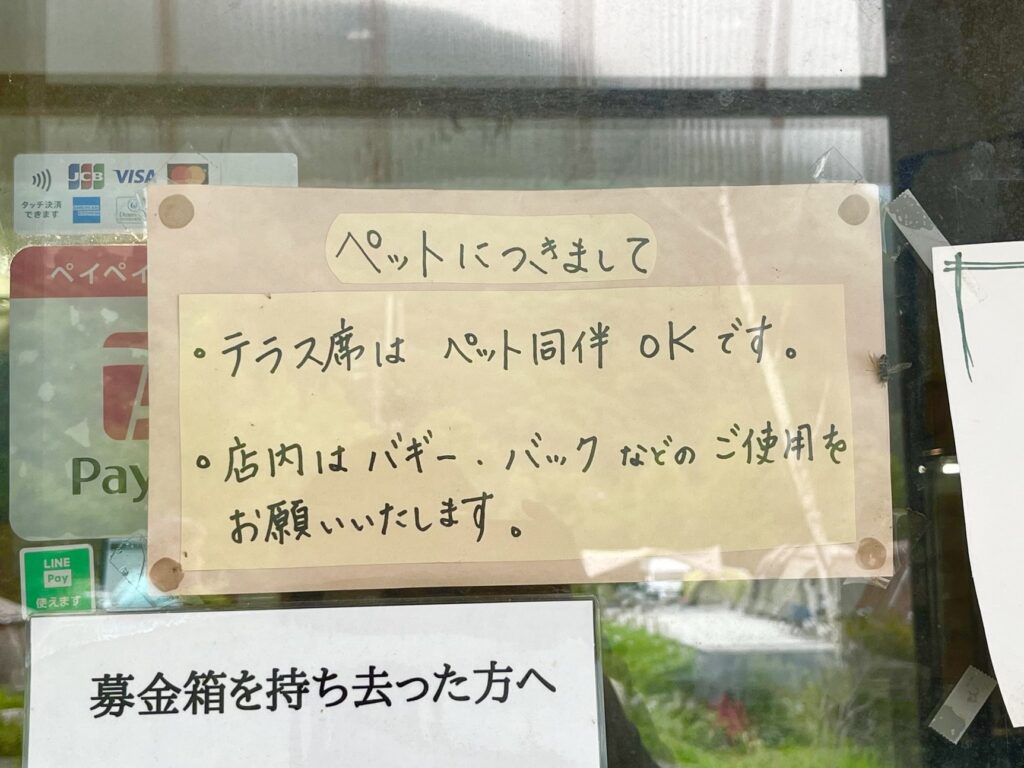 JCB VISA
タッチ決済
できます
ペイペイ
Pay
LINE
Pay
使えます
ペットにつきまして
・テラス席は ペット同伴 OKです。
・店内は バギー・バック などの ご使用を
お願いいたします。
募金箱を持ち去った方へ